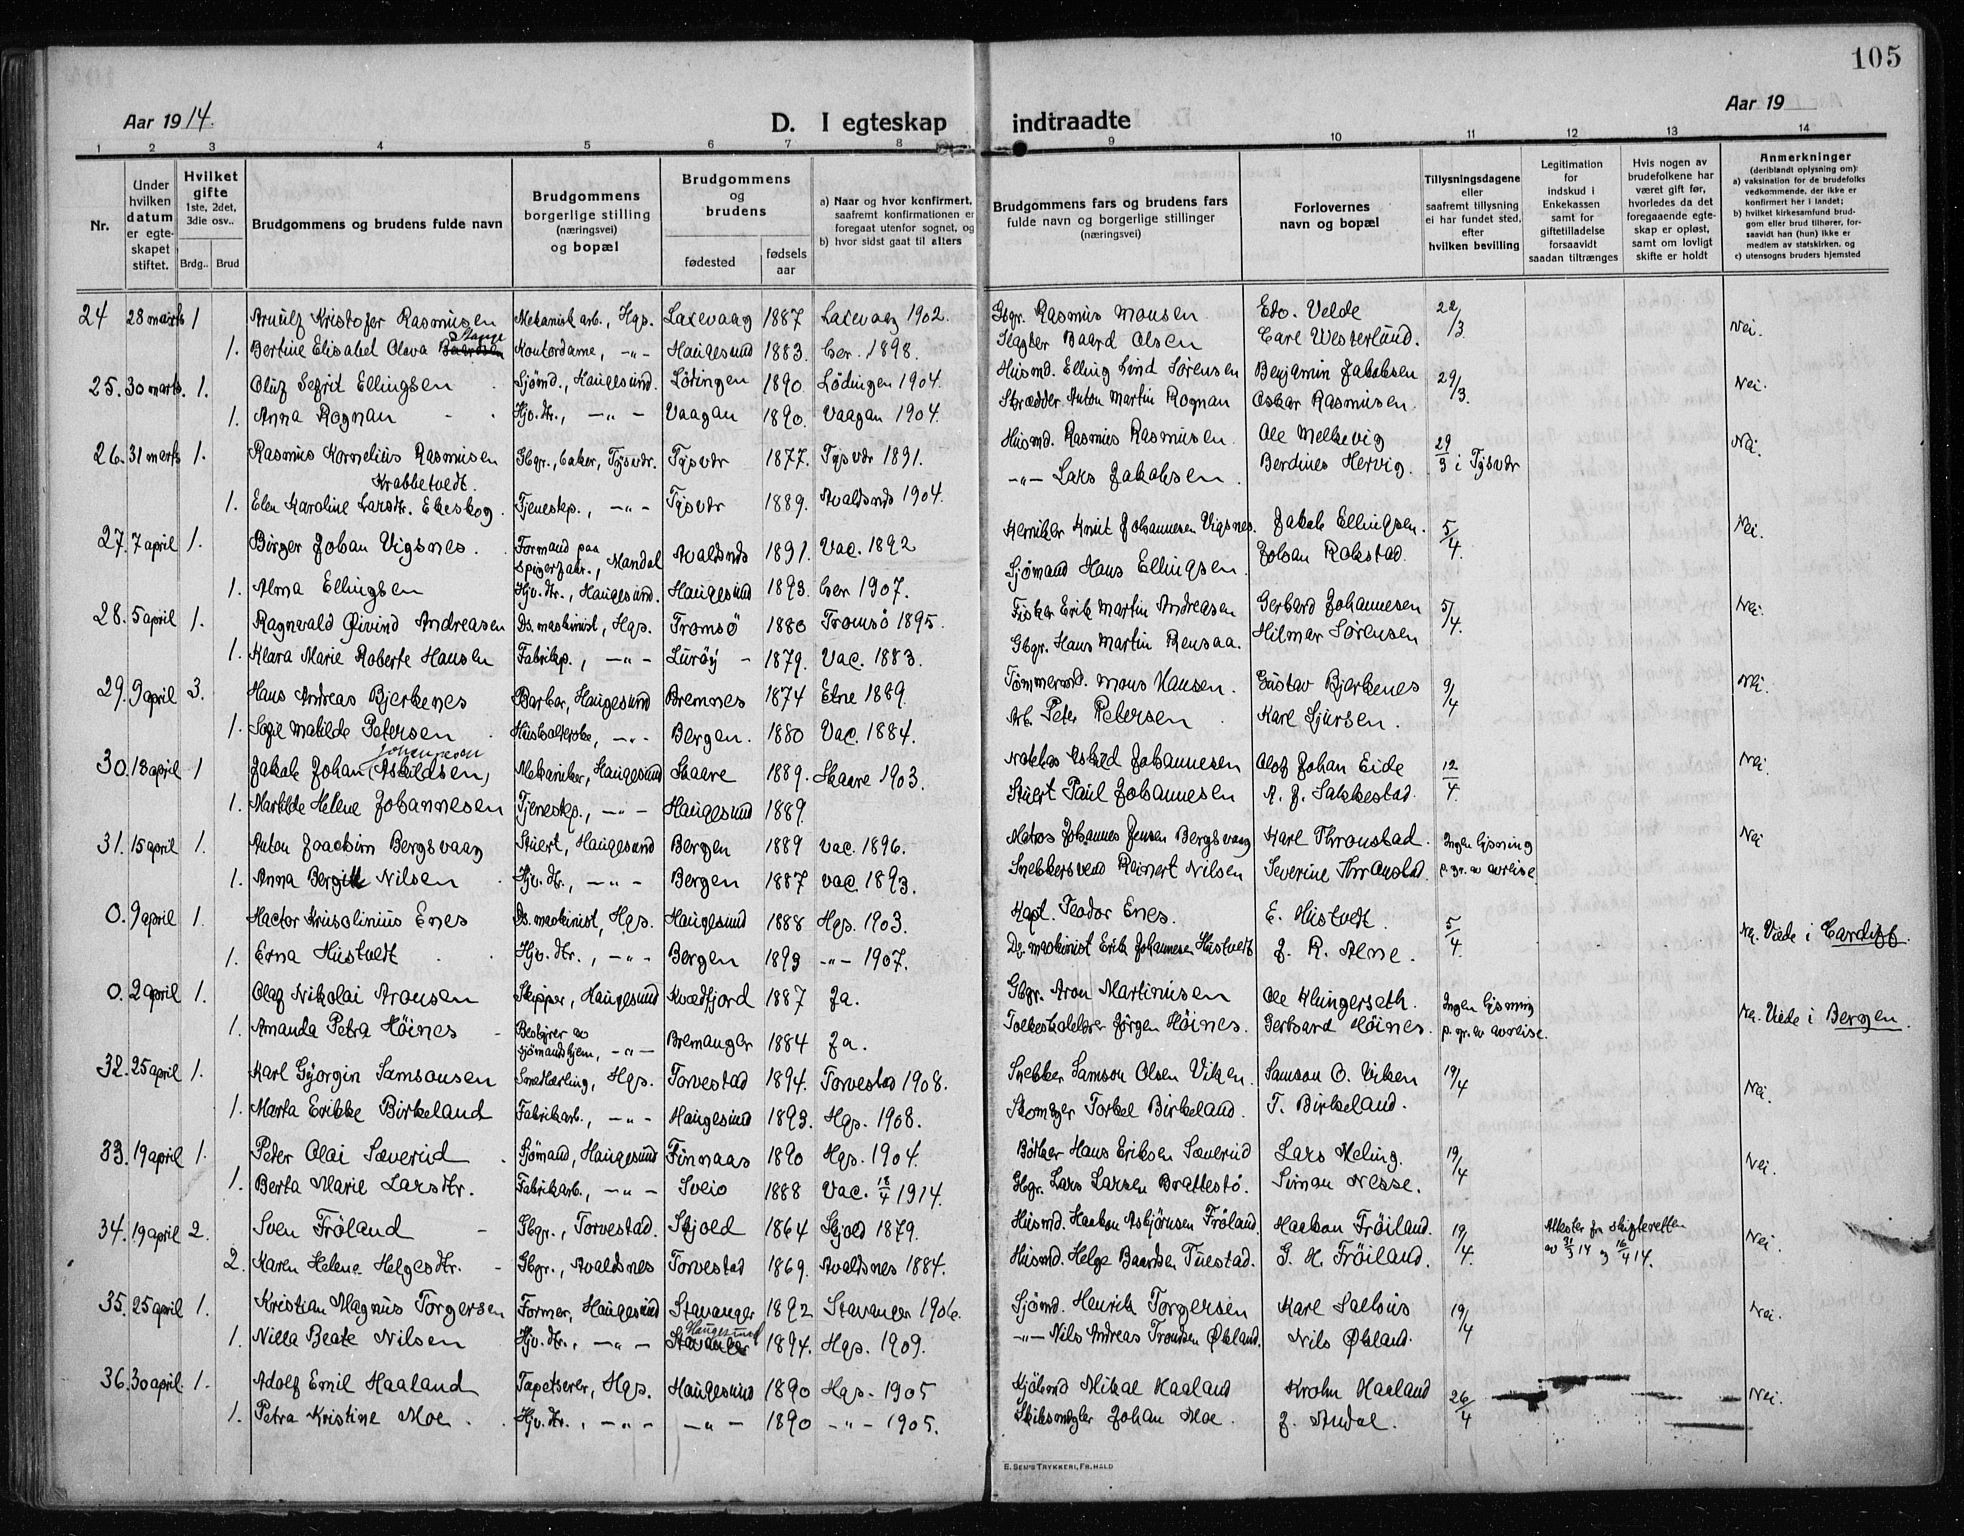 105
Aar 1914. D. I egteskap indtraadte Aar 19
1 2 3 4 5 6 7 8 9 10 11 12 13 14
Nr.
Under hvilken datum er egteskapet stiftet.
Hvilket gifte 1ste, 2det, 3die osv..
Brdg.. Brud
Brudgommens og brudens fulde navn
Brudgommens borgerlige stilling (næringsvei) og bopæl
Brudgommens og brudens
fødested fødselsaar
a) Naar og hvor konfirmert, saafremt konfirmationen er foregaat utenfor sognet, og
b) hvor sidst gaat til alters
Brudgommens fars og brudens fars fulde navn og borgerlige stillinger (næringsvei)
Forlovernes navn og bopæl
Tillysningsdagene eller saafremt tillysning ei har fundet sted, efter hvilken bevilling
Legitimation for indskud i Enkekassen samt for giftetilladelse forsaavidt saadan tiltrænges
Hvis nogen av brudefolkene har været gift før, hvorledes da det foregaaende egteskap er opløst, samt om lovligt skifte er holdt
Anmerkninger (deriblandt oplysning om):
a) vaksination for de brudefolks vedkommende, der ikke er konfirmert her i landet;
b) hvilket kirkesamfund brudgom eller brud tilhører, forsaavidt han (hun) ikke er medlem av statskirken, og
c) utensogns bruders hjemsted
24 28 marts 1 Arnulf Kristofer Rasmusen Mekanisk arb., Hgs. Laxevaag 1887 Laxevaag 1902. Gbgr. Rasmus Monsen Edv. Velde 22/3 Nei.
1. Bertine Elisabet Olava Stange Kontordame, -"- Haugesund 1883. her. 1898. Slagter Baard Olsen Carl Westerlund.
25. 30 marts. 1. Oluf Sefrit Ellingsen Sjømd., Haugesund. Lödingen 1890. Lödingen 1904. Husmd. Elling Lind Sörensen Benjamin Jakobsen 29/3. Nei.
1. Anna Rognan Hjv. dtr., -"- Vaagan 1890. Vaagan 1904. Skrædder Anton Martin Rognan Oskar Rasmusen.
26. 31 marts 1. Rasmus Kornelius Rasmusen Gbgr., baker, Tysvær. Tysvær 1877. Tysvær 1891. Husmd. Rasmus Rasmusen. Ole Melkevig 29/3 i Tysvær Nei.
Krabbetvedt.
1. Elen Karoline Larsdtr. Ekeskog. Tjenestep., -"- Tysvær 1889. Avaldsnes 1904. -"- Lars Jakobsen Berdines Hervig.
27. 7 april 1. Birger Johan Vigsnes. Formand paa spigerfabr., Mandal Avaldsnes 1891. Vac. 1892 Kemiker Knut Johannesen Vigsnes. Jakob Ellingsen. 5/4. Nei.
1. Alma Ellingsen Hjv. dtr., Haugesund. Haugesund 1893. her 1907. Sjømand Hans Ellingsen. Johan Rokstad.
28. 5 april 1. Ragnvald Øivind Andreasen Ds. maskinist, Hgs. Tromsö 1880 Tromsö 1895. Fisker Erik Martin Andreasen Gerhard Johannesen 5/4. Nei.
1. Klara Marie Roberte Hansen Fabrikp., -"- Luröy - 1879. Vac. 1883. Gbgr. Hans Martin Rensaa. Hilmar Sørensen
29. 9 april 3. Hans Andreas Bjerkenes Barber, Haugesund Bremnes 1874 Etne 1889. Tømmermd. Mons Hansen. Gustav Bjerkenes 9/4 Nei.
1. Sofie Matilde Petersen. Husholderske, -"- Bergen. 1880 Vac. 1884. Arb. Peter Petersen Karl Sjursen.
30. 13 april 1 Jakob Johan (Askildsen) Johannesen Mekaniker, Haugesund Skaare 1889. Skaare 1903. Askild Johannesen Olaf Johan Eide 12/4. Nei.
1. Matilde Helene Johannesen Tjenestep., -"- Haugesund 1889. Stuert Paul Johannesen A. J. Sakkestad.
31. 15 april 1. Anton Joachim Bergsvaag Stuert, Haugesund Bergen 1889 vac. 1896. Matros Johannes Jensen Bergsvaag Karl Thronstad. Ingen lysning Nei
1. Anna Bergitte Nilsen Hjv. dtr., -"- Bergen 1887 vac. 1893. Snekkersvend Reinert Nilsen Severine Thronstad. p. gr. av avreise.
0. 9 april 1. Hactor Krusolinius Enes Ds. maskinist, Hgs. Haugesund 1888 Hgs. 1903. Kapt. Teodor Enes. E. Hustvedt. 5/4. Na. Viede i Cardiff.
1. Erna Hustvedt Hjv. dtr., -"- Bergen 1893 -"- 1907. Ds. maskinist Erik Johannesen Hustvedt J. R. Alne.
0. 2 april 1. Olaf Nikolai Aronsen Skipper, Haugesund Kvædfjord 1887 Ja. Gbgr. Aron Martinusen Ole Klungerseth. Ingen lysning Na. Viede i Bergen.
1. Amanda Petra Höines Bestyrer av sjømandshjem, -"- Bremanger 1884 Ja. Jørgen Höines. Gerhard Höines. p. gr. av avreise.
32. 25 april 1. Karl Gjorgin Samsonsen Smedlærling, Hgs. Torvestad 1894. Torvestad 1908. Snekker Samson Olsen Viken. Samson O. Viken 19/4 Nei.
1. Marta Erikke Birkeland Fabrikarb., -"- Haugesund 1893. Hgs. 1908. Torkel Birkeland. T. Birkeland.
33. 19 april 1. Peter Olai Sæverud Sjømand, Haugesund Finnaas 1890 Hgs. 1904. Bøtker Hans Eriksen Sæverud Lars Meling. 19/4 Nei.
1. Berta Marie Larsdtr. Fabrikarb., -"- Sveio 1888 Vac. 18/4 1914. Gbgr. Lars Larsen Brattestö. Simon Nesse.
34. 19 april 2. Sven Fröland Gbgr., Torvestad. Skjold 1864 Skjold 1879. Husmd. Haakon Asbjörnsen Fröland. Haakon Fröiland. 19/4 Attester fra skifteretten Nei.
2. Karen Helene Helgesdtr. Gbgr., Avaldsnes Torvestad 1869. Avaldsnes 1884. Husmd. Helge Baardsen Tuestad. G. H. Fröiland. av 31/3 14 og 16/4 14.
35. 25 april 1. Kristian Magnus Torgersen Former, Haugesund Stavanger 1892 Stavanger 1906. Sjømd. Henrik Torgersen Karl Saelsus 19/4 Nei.
1. Nilla Beate Nilsen Hjv. dtr., -"- Haugesund Stavanger 1894. Hgs. 1909. -"- Nils Andreas Trondsen Økland. Nils Økland.
36. 30 april. 1. Adolf Emil Haaland Tapetserer, Hgs. Haugesund 1890 Hgs. 1905 Mikal Haaland Krohn Haaland 26/4 Nei.
1. Petra Kristine Moe. Hjv. dtr., -"- -"- 1890 -"- 1905. Skibsmægler Johan Moe. J. Andal.
E. SEM'S TRYKKERI, FR.HALD